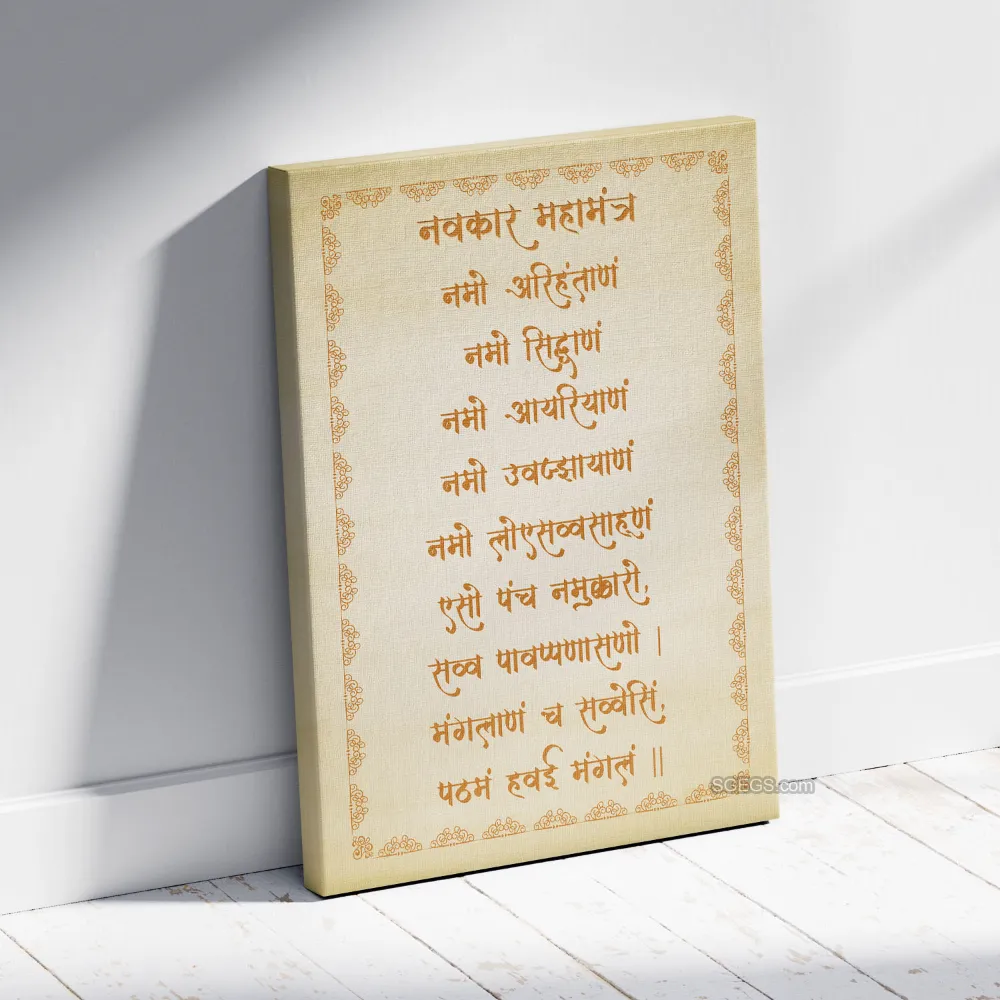 नवकार महामंत्र
नमो अरिहंताणं
नमो सिद्धाणं
नमो आयरियाणं
नमो उवज्झायाणं
नमो लोएसव्वसाहुणं
एसो पंच नमुक्कारो,
सव्व पावप्पणासणो |
मंगलाणं च सव्वेसिं,
पठमं हवई मंगलं ||
SGEGS.com